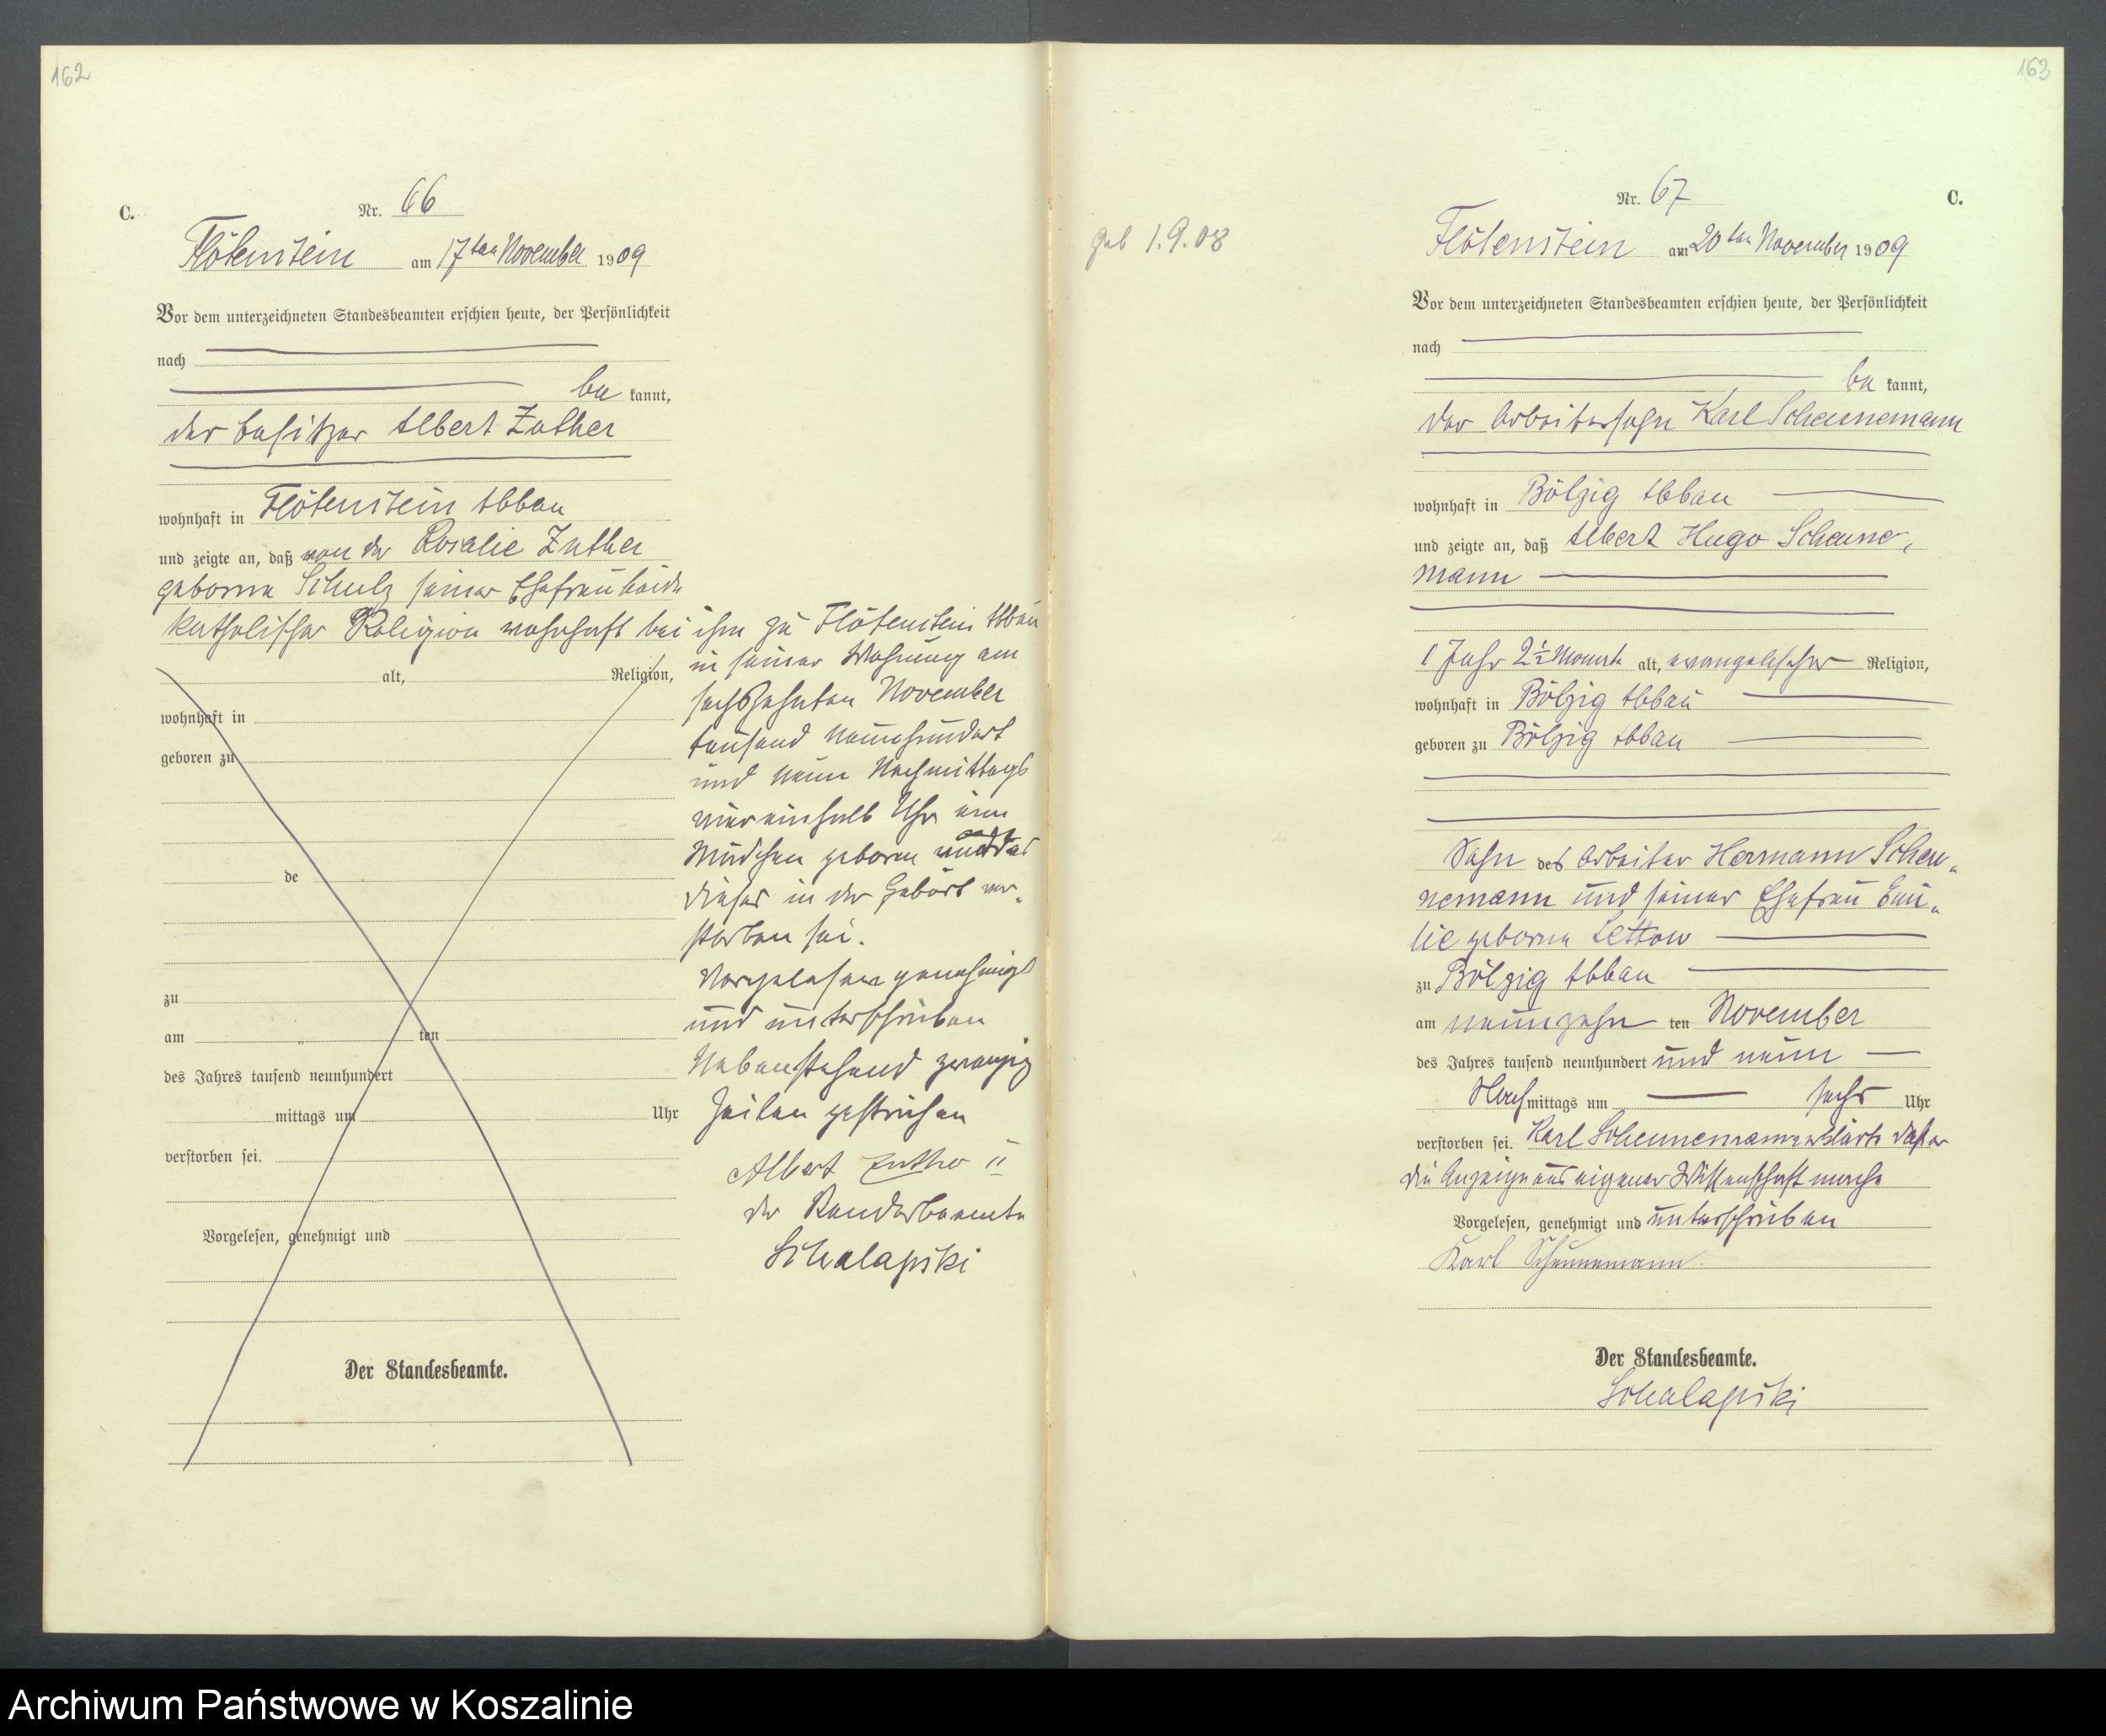 162
C.
Nr. 66
Flötenstein am 17ten November 1909
Vor dem unterzeichneten Standesbeamten erschien heute, der Persönlichkeit
nach
be kannt,
der Besitzer Albert Zuther
wohnhaft in Flötenstein Abbau
und zeigte an, daß von der Rosalie Zuther
geborne Schulz seiner Ehefrau beide
katholischer Religion wohnhaft bei ihm zu Flötenstein Abbau
in seiner Wohnung am
sechszehnten November
tausend neunhundert
und neun Nachmittags
viereinhalb Uhr ein
Mädchen geboren und daß
dieses in der Geburt ver-
storben sei.
Vorgelesen genehmigt
und unterschrieben
Nebenstehend zwanzig
Zeilen gestrichen
Albert Zuther II
der Standesbeamte
Schalapski
alt, Religion,
wohnhaft in
geboren zu
de
zu
am ten
des Jahres tausend neunhundert
mittags um Uhr
verstorben sei.
Vorgelesen, genehmigt und
Der Standesbeamte.
163
C.
Nr. 67
geb 1.9.08
Flötenstein am 20ten November 1909
Vor dem unterzeichneten Standesbeamten erschien heute, der Persönlichkeit
nach
be kannt,
der Arbeitersohn Karl Scheunemann
wohnhaft in Bölzig Abbau
und zeigte an, daß Albert Hugo Scheune-
mann
1 Jahr 2½ Monate alt, evangelischer Religion,
wohnhaft in Bölzig Abbau
geboren zu Bölzig Abbau
Sohn des Arbeiter Hermann Scheu-
nemann und seiner Ehefrau Emi-
lie geborne Lettow
zu Bölzig Abbau
am neunzehn ten November
des Jahres tausend neunhundert und neun
Nach mittags um sechs Uhr
verstorben sei. Karl Scheunemann erklärte daß er
die Anzeige aus eigener Wissenschaft mache
Vorgelesen, genehmigt und unterschrieben
Karl Scheunemann.
Der Standesbeamte.
Schalapski
Archiwum Państwowe w Koszalinie